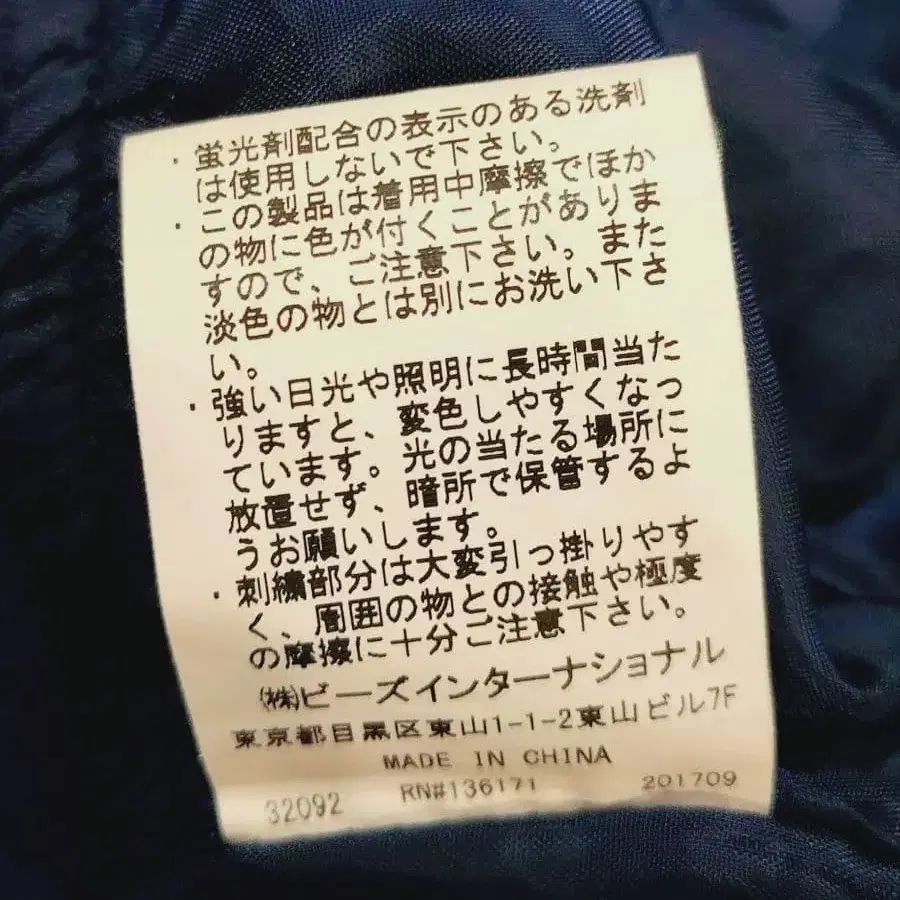 ・蛍光剤配合の表示のある洗剤
は使用しないで下さい。
・この製品は着用中摩擦でほか
の物に色が付くことがありま
すので、ご注意下さい。また
淡色の物とは別にお洗い下さ
い。
・強い日光や照明に長時間当た
りますと、変色しやすくなっ
ています。光の当たる場所に
放置せず、暗所で保管するよ
うお願いします。
・刺繍部分は大変引っ掛りやす
く、周囲の物との接触や極度
の摩擦に十分ご注意下さい。
㈱ビーズインターナショナル
東京都目黒区東山1-1-2東山ビル7F
MADE IN CHINA
32092 RN#136171 201709